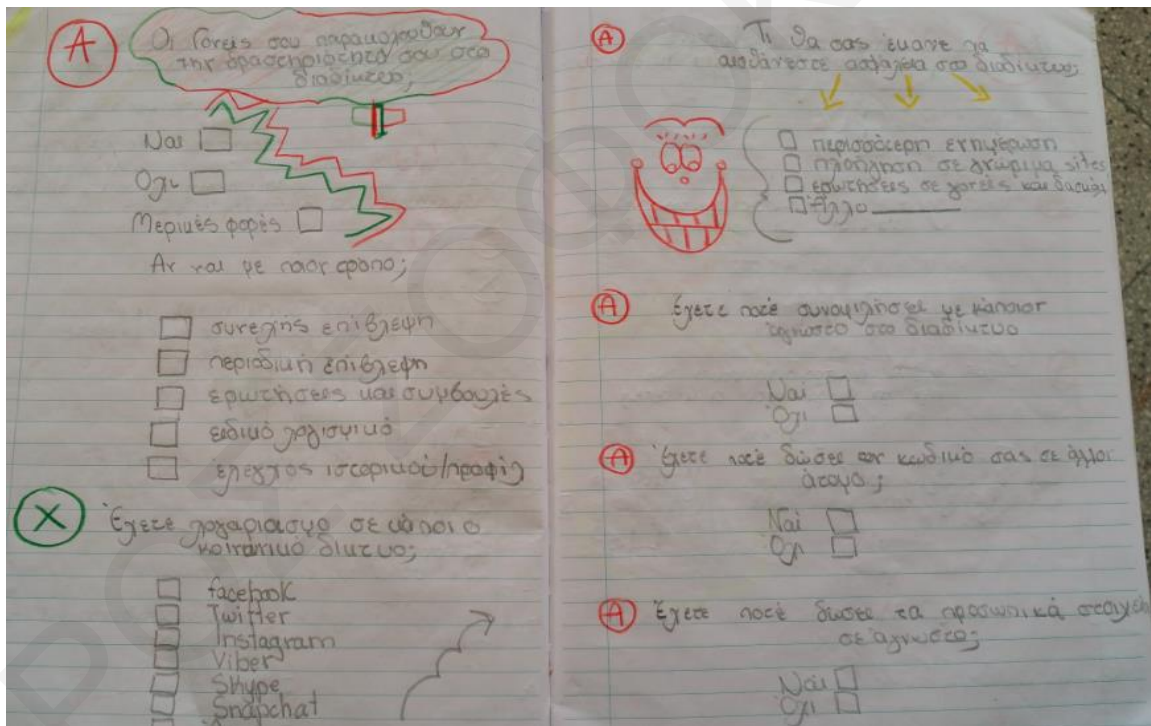 Α
Οι Γονείς σου παρακολουθούν
την δραστηριότητά σου στο
διαδίκτυο;
Ναι
Όχι
Μερικές φορές
Αν ναι με ποιον τρόπο;
συνεχής επίβλεψη
περιοδική επίβλεψη
ερωτήσεις και συμβουλές
ειδικό λογισμικό
έλεγχος ιστορικού/προφίλ
Χ
Έχετε λογαριασμό σε κάποιο
κοινωνικό δίκτυο;
facebook
Twitter
Instagram
Viber
Skype
Snapchat
Α
Τι θα σας έκανε να
αισθάνεστε ασφάλεια στο διαδίκτυο;
περισσότερη ενημέρωση
πλοήγηση σε γνώριμα sites
ερωτήσεις σε γονείς και
Άλλο
Α
Έχετε ποτέ συνομιλήσει με κάποιον
άγνωστο στο διαδίκτυο
Ναι
Όχι
Α
Έχετε ποτέ δώσει τον κωδικό σας σε άλλοι
άτομο;
Ναι
Όχι
Α
Έχετε ποτέ δώσει τα προσωπικά
σε άγνωστο;
Ναι
Όχι